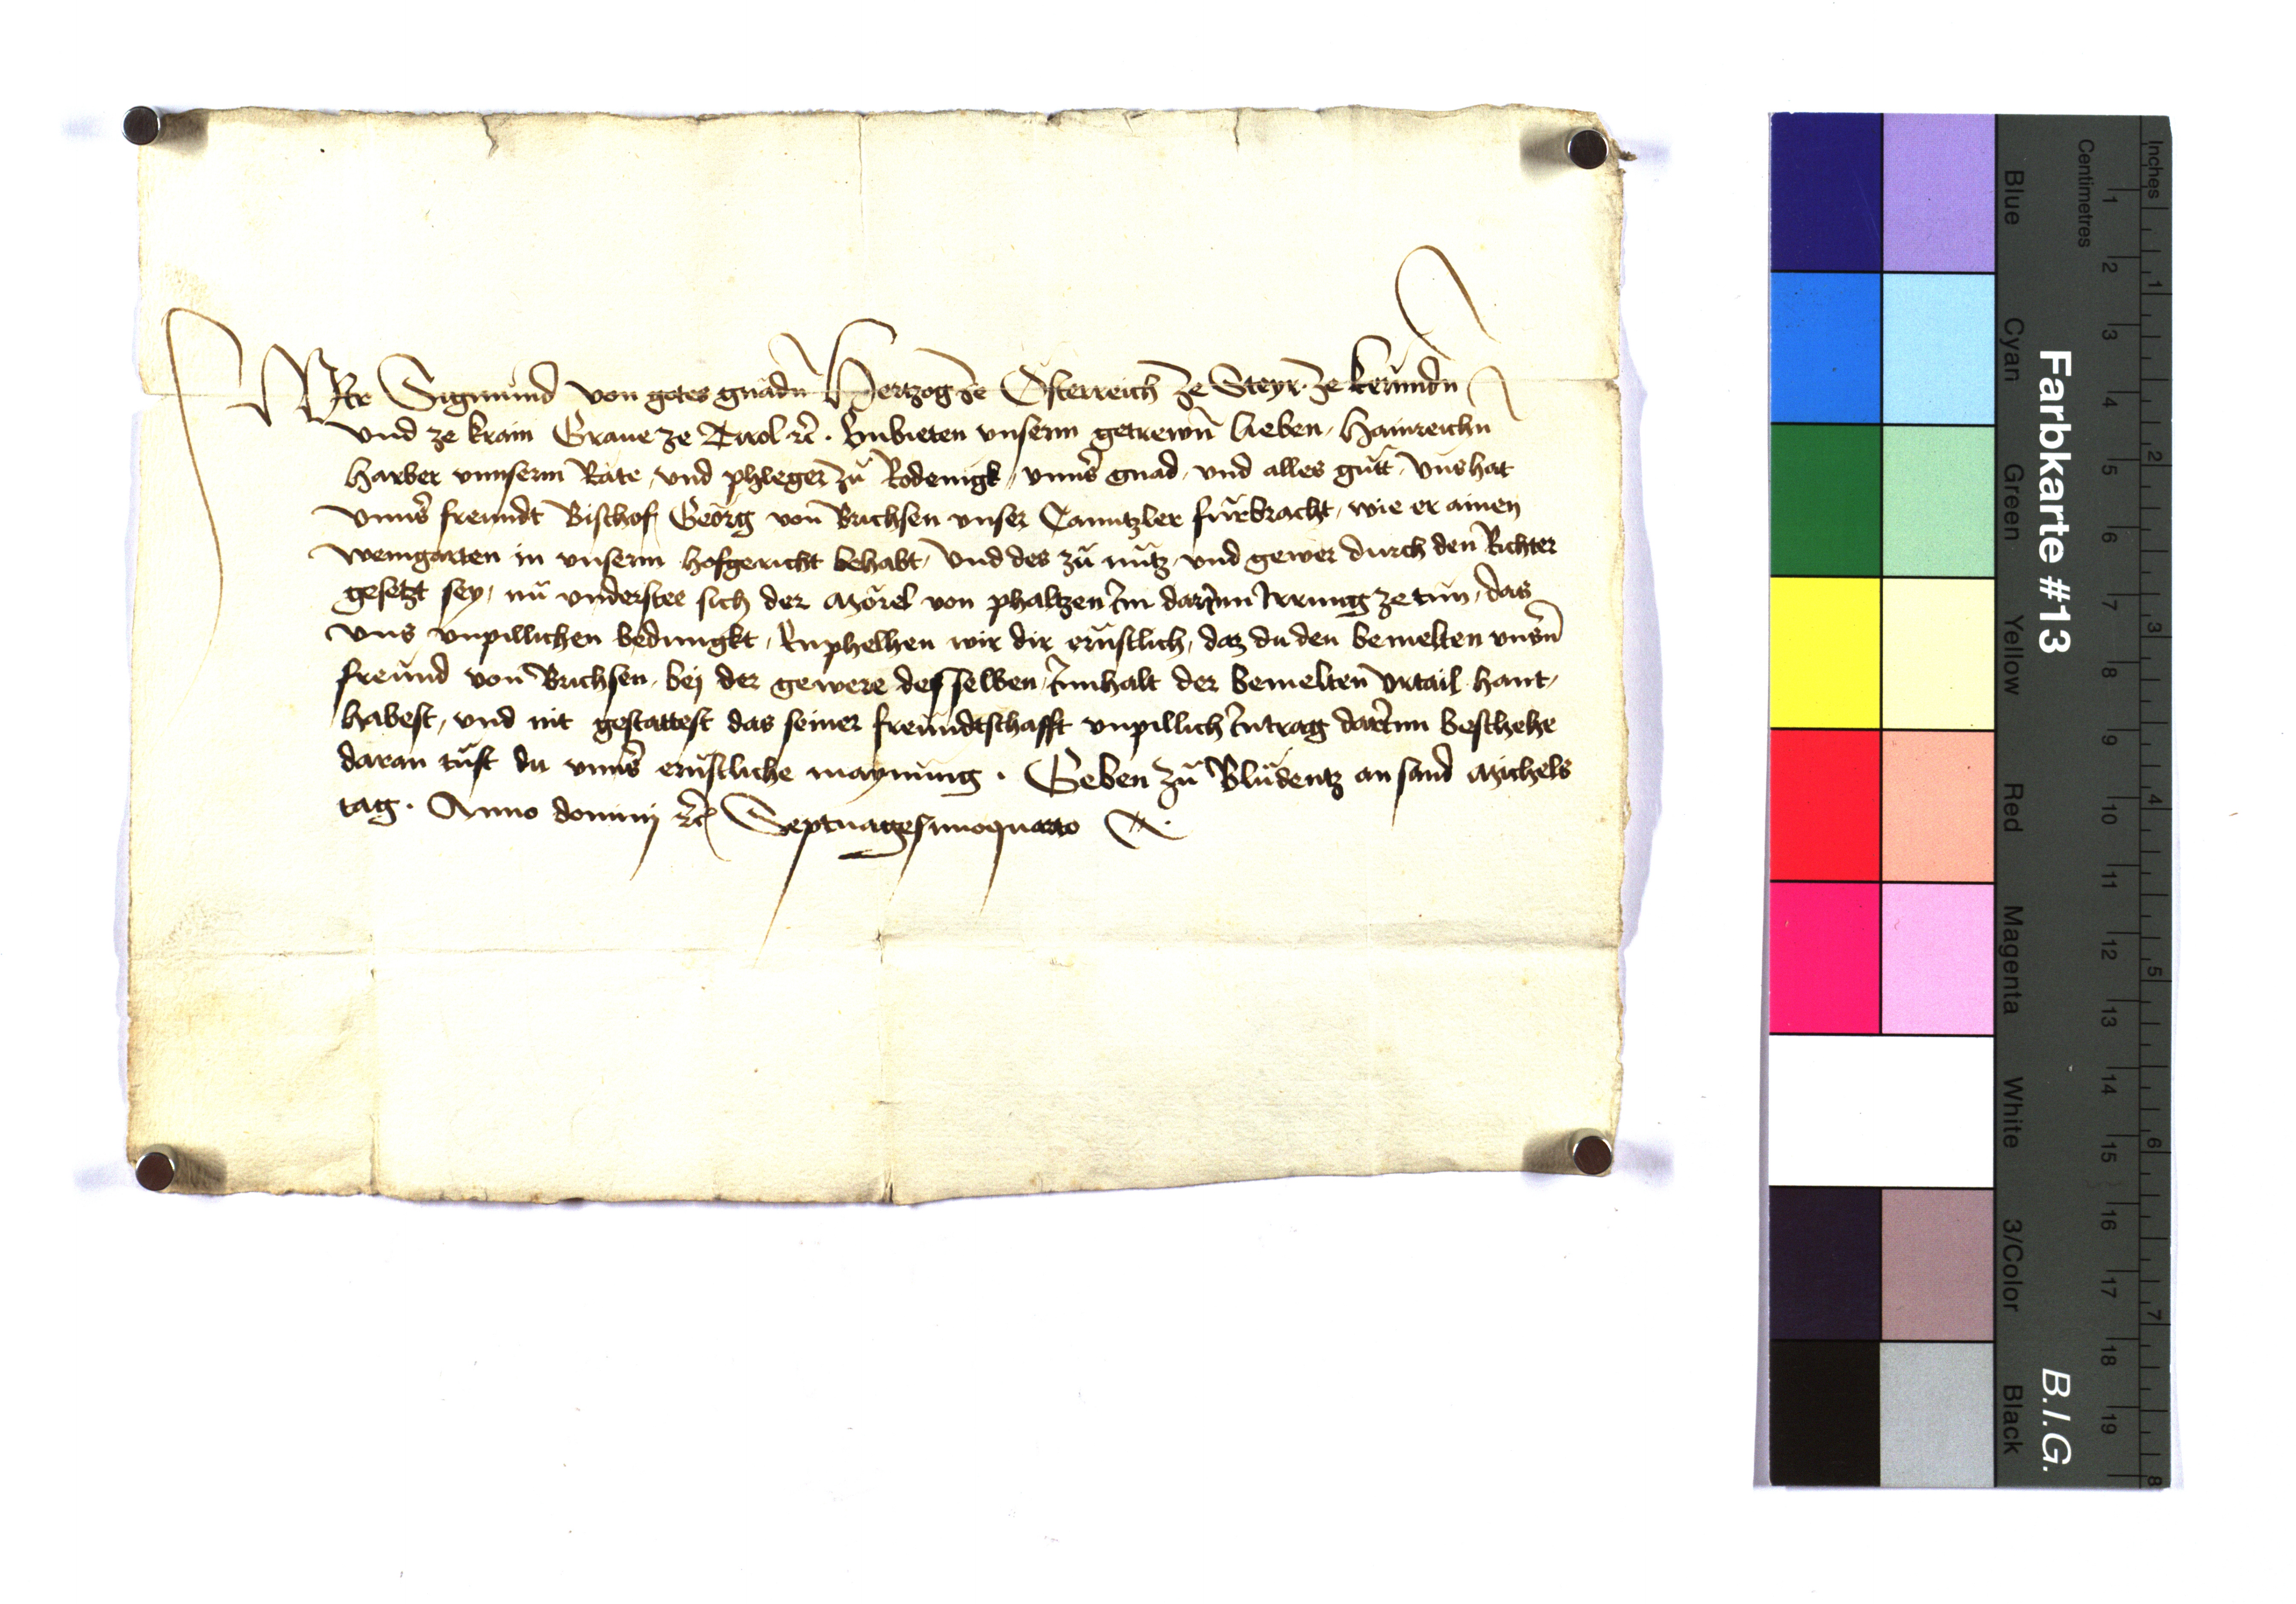 Wir Sigmund von gotes gnadn Hertzog ze Österreich ze Steyr ze kerundn
vnd ze krain Graue ze Tirol etc. Enbieten vnserm getrewn lieben, Hainreichn
Harber vnnserm Rate, vnd phleger zu Rodenigk, vnns gnad, vnd alles gutt, vns hat
vnns freundt Bischof Georg von Brichsen vnser Canntzler fürbracht, wie er ainen
weingarten in vnserm hofgericht behabt, vnd des zu nutz, vnd gewer durch den Richter
gesetzt sey, nu vnderstee sich der Mörel von phaltzen im darinn Irrung ze tun, das
vns vnpillichen bedungkt, Emphelhen wir dir ernstlich, daz du den bemelten vnsn
freund von Brichsen, bej der gewere desselben, innhalt der bemelten vrtail hant,
habest, vnd nit gestattest das seiner freundtschafft vnpillich intrag darinn beschehe
daran tust du vnns ernstliche maynung. Geben zu Bludentz an sand Michels
tag. Anno dominj etc Septuagesimoquarto
Farbkarte #13
B.I.G.
Blue
Cyan
Green
Yellow
Red
Magenta
White
3/Color
Black
Centimetres
1 2 3 4 5 6 7 8 9 10 11 12 13 14 15 16 17 18 19
Inches
1 2 3 4 5 6 7 8